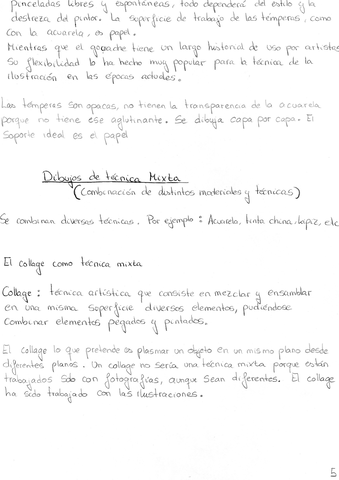 pinceladas libres y espontáneas, todo dependerá del estilo y la
destreza del pintor. La superficie de trabajo de las témperas, como
con la acuarela, es papel.
Mientras que el gouache tiene un largo historial de uso por artistas
Su flexibilidad lo ha hecho muy popular para la técnica de la
ilustración en las épocas actuales.
Las témperas son opacas, no tienen la transparencia de la acuarela
porque no tiene ese aglutinante. Se dibuja capa por capa. El
soporte ideal es el papel
Dibujos de técnica Mixta
(Combinación de distintos materiales y técnicas)
Se combinan diversas técnicas. Por ejemplo: Acuarela, tinta china, lápiz, etc
El collage como técnica mixta
Collage: técnica artística que consiste en mezclar y ensamblar
en una misma superficie diversos elementos, pudiéndose
combinar elementos pegados y pintados.
El collage lo que pretende es plasmar un objeto en un mismo plano desde
diferentes planos. Un collage no sería una técnica mixta porque están
trabajados sólo con fotografías, aunque sean diferentes. El collage
ha sido trabajado con las ilustraciones.
5